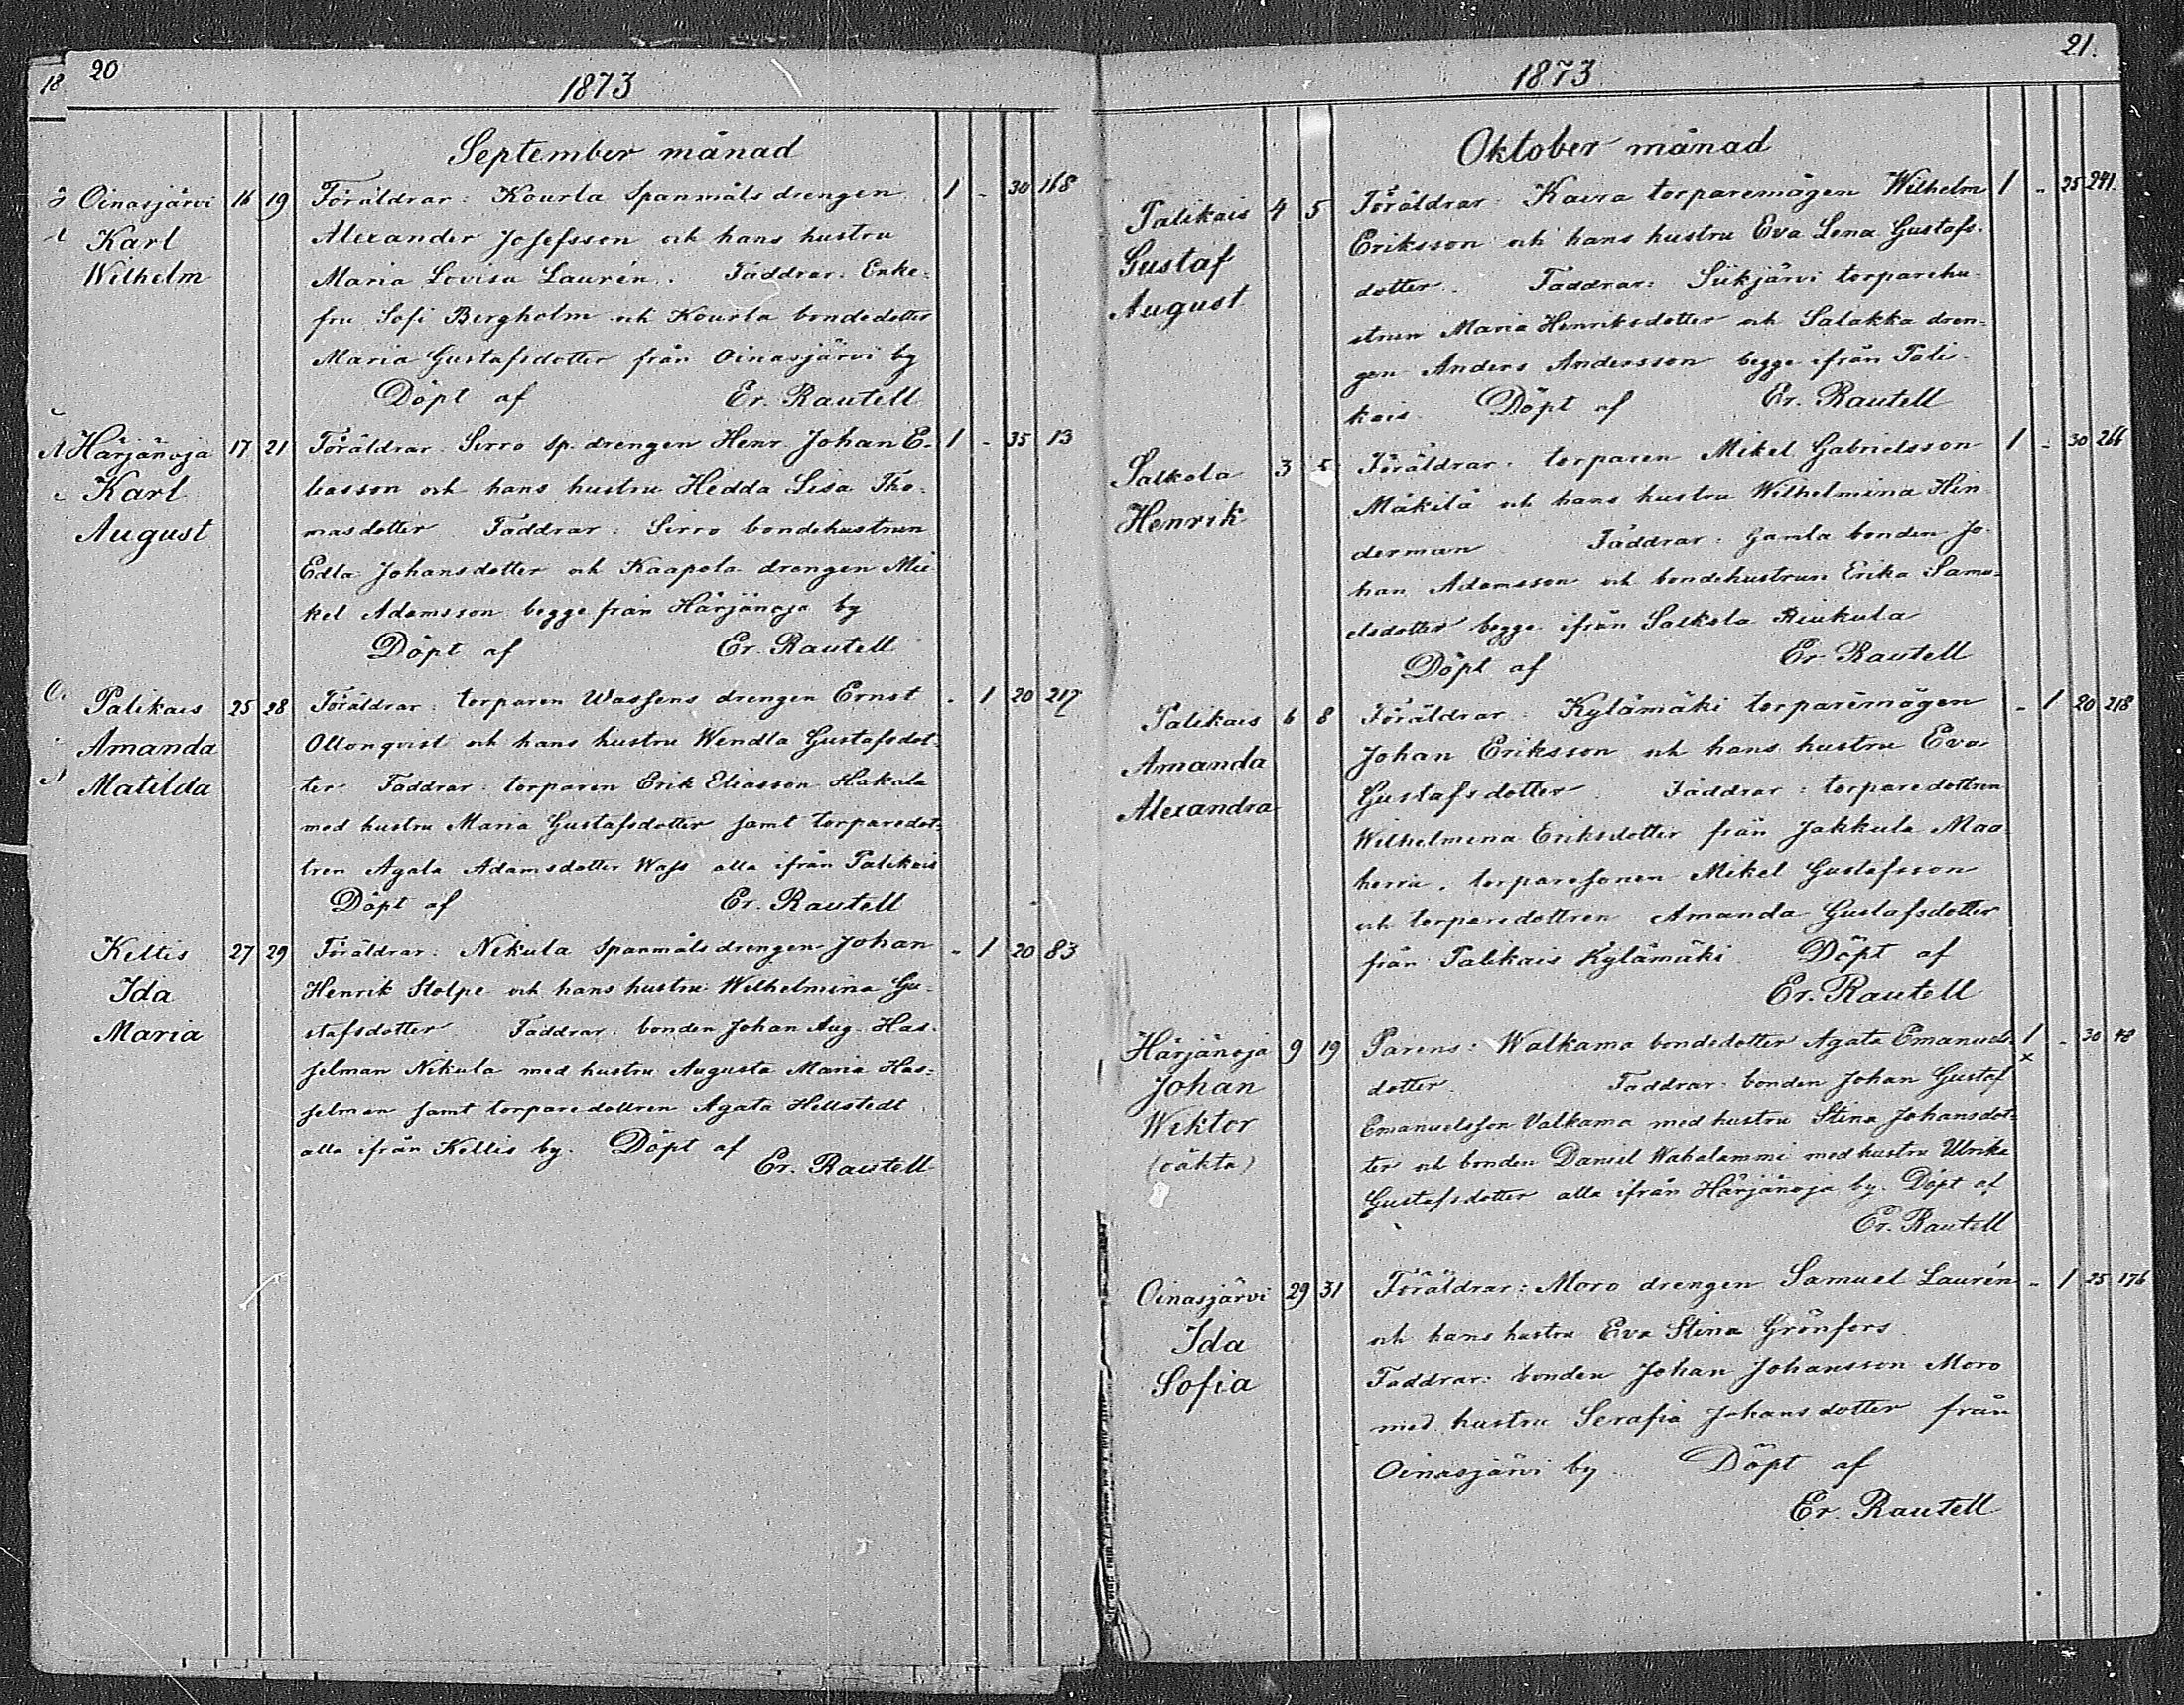 18
20
1873
September månad
Oinasjärvi 16 19 Föräldrar: Kourla Spanmåls drengen 1 - 30 168
Karl Alexander Josefsson och hans hustru
Wilhelm Maria Lovisa Laurén. Faddrar: Enke-
fru Sofi Bergholm och Kourla bondedotter
Maria Gustafsdotter från Oinasjärvi by
Döpt af Er. Rautell
Härjänoja 17 21 Föräldrar: Sirro sp. drengen Henr. Johan E- 1 - 35 13
Karl liasson och hans hustru Hedda Lisa Tho-
August masdotter Faddrar: Sirro bondehustrun
Edla Johansdotter och Kaapola drengen Mi-
kel Adamsson begge från Härjänoja by
Döpt af Er. Rautell
Palikais 25 28 Föräldrar: torparen Wassens drengen Ernst - 1 20 217
Amanda Ollonqvist och hans hustru Wendla Gustafsdot-
Matilda ter. Faddrar: torparen Erik Eliasson Hakala
med hustru Maria Gustafsdotter samt torparedot-
tren Agata Adamsdotter Wass alla ifrån Palikais
Döpt af Er. Rautell
Kellis 27 29 Föräldrar: Nikula Spanmåls drengen Johan - 1 20 83
Ida Henrik Stolpe och hans hustru Wilhelmina Gu-
Maria stafsdotter Faddrar: bonden Johan Aug. Has-
selman Nikula med hustru Augusta Maria Has-
selman samt torparedottren Agata Hellstedt
alla ifrån Kellis by. Döpt af
Er. Rautell
21.
1873.
Oktober månad
Palikais 4 5 Föräldrar: Kaura torparemågen Wilhelm 1 - 25 241.
Gustaf Eriksson och hans hustru Eva Lena Gustafs-
August dotter. Faddrar: Siikjärvi torparehu-
strun Maria Henriksdotter och Salakka dren-
gen Anders Andersson begge ifrån Pali-
kais. Döpt af Er. Rautell
Salkola 3 5 Föräldrar: torparen Mikel Gabrielsson 1 - 30 266
Henrik Mäkilä och hans hustru Wilhelmina Hin-
derman Faddrar: Gamla bonden Jo-
han Adamsson och bondehustrun Erika Samu-
elsdotter begge ifrån Salkola Riukula
Döpt af Er. Rautell
Palikais 6 8 Föräldrar: Kylämäki torparemågen - 1 20 218
Amanda Johan Eriksson och hans hustru Eva
Alexandra Gustafsdotter. Faddrar: torparedottren
Wilhelmina Eriksdotter från Jakkula Maa-
herra, torparesonen Mikel Gustafsson
och torparedottren Amanda Gustafsdotter
från Palikais Kylämäki. Döpt af
Er. Rautell
Härjänoja 9 19 Parens: Walkama bondedotter Agata Emanuels- 1 - 30 48
Johan dotter. Faddrar: bonden Johan Gustaf ×
Wiktor Emanuelsson Valkama med hustru Stina Johansdot-
(oäkta) ter och bonden Daniel Wahalammi med hustru Ulrika
Gustafsdotter alla ifrån Härjänoja by. Döpt af
Er. Rautell
Oinasjärvi 29 31 Föräldrar: Moro drengen Samuel Laurén - 1 25 176
Ida och hans hustru Eva Stina Grönfors.
Sofia Faddrar: bonden Johan Johansson Moro
med hustru Serafia Johansdotter från
Oinasjärvi by. Döpt af
Er. Rautell